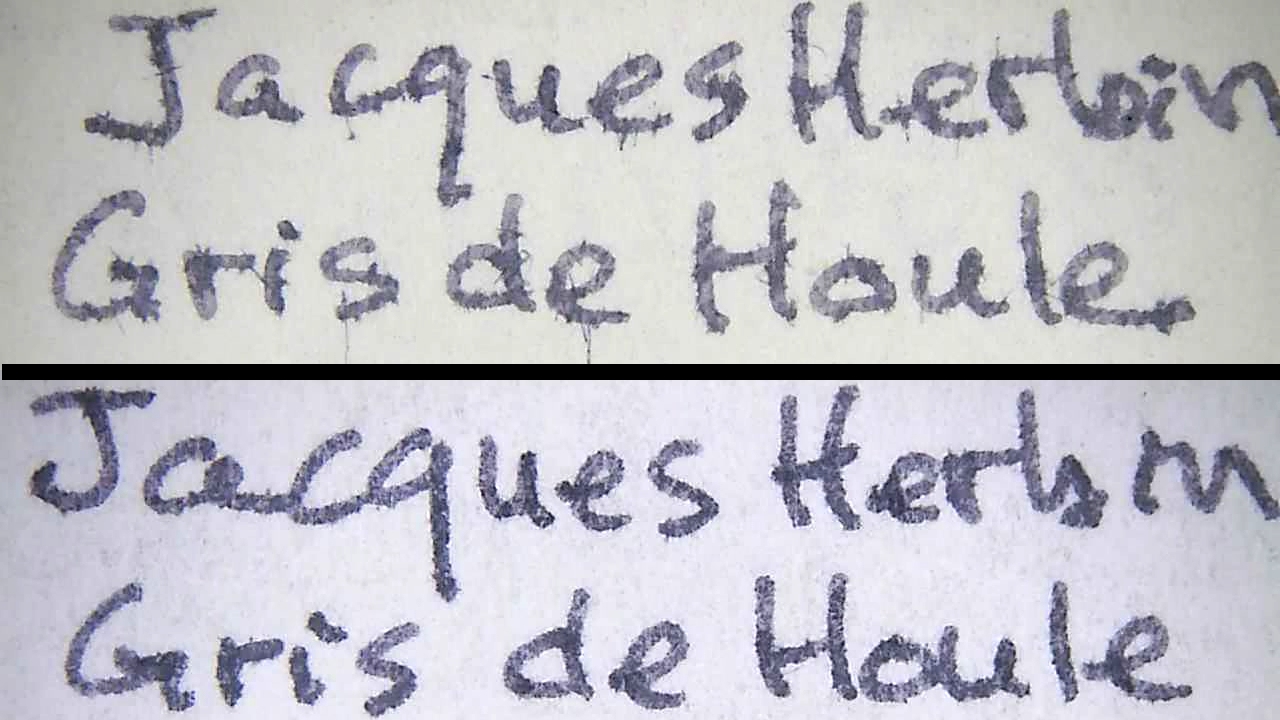 Jacques Herbin
Gris de Houle
Jacques Herbin
Gris de Houle